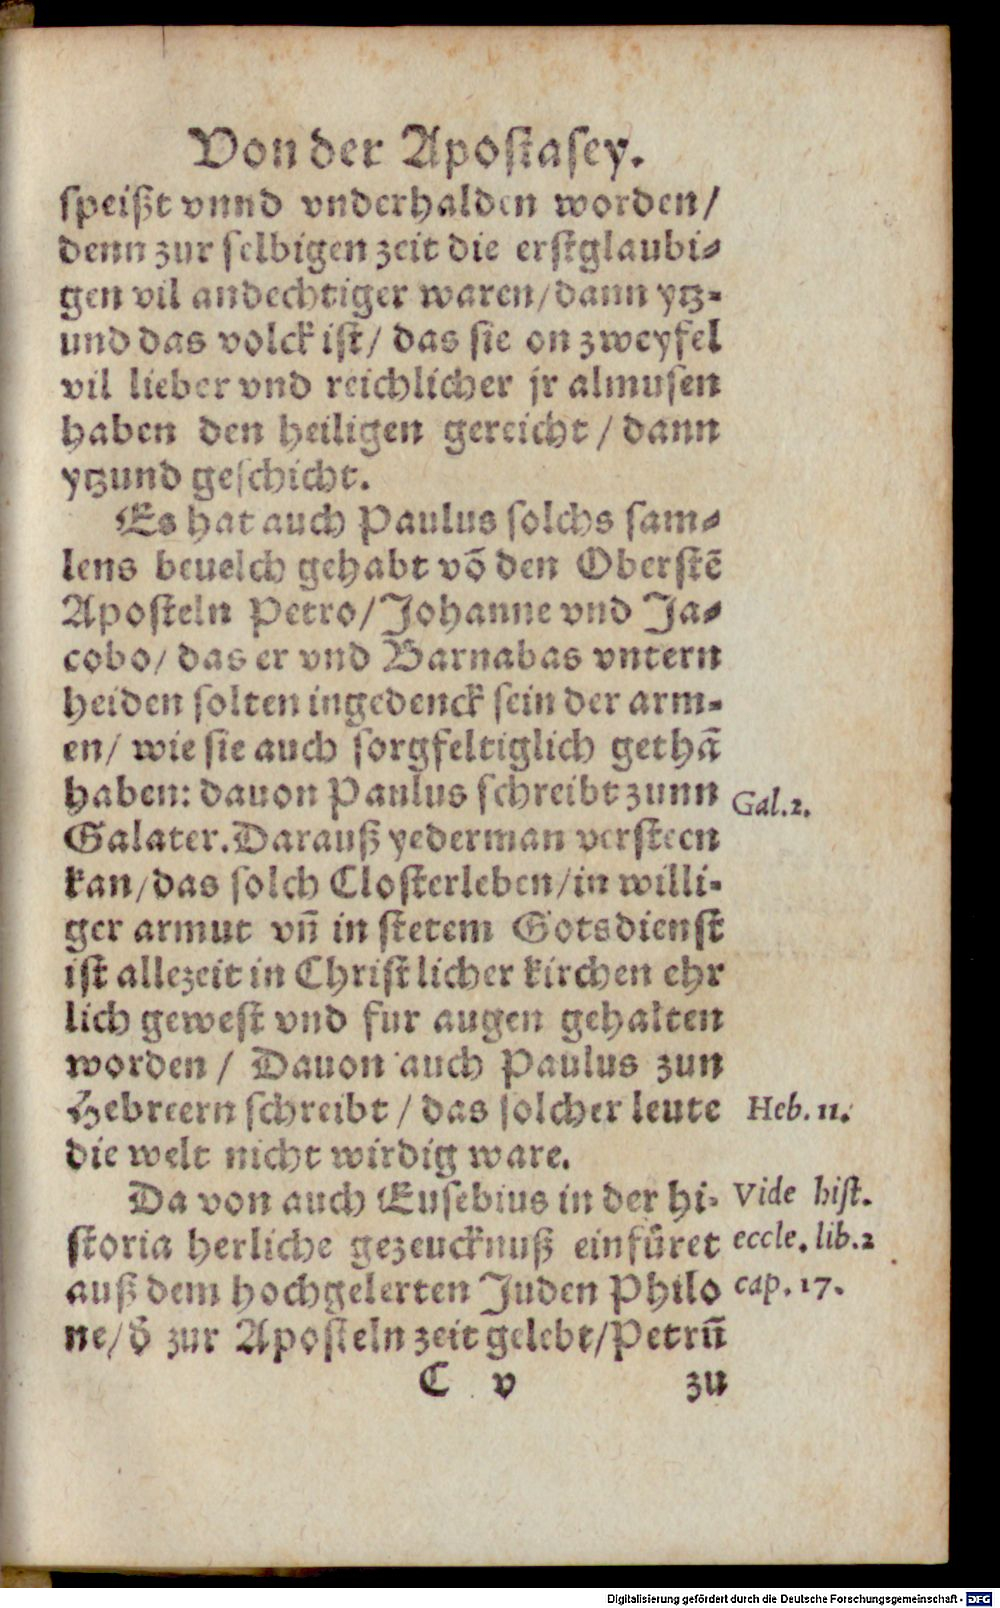 Von der Apostasey.
speißt vnnd vnderhalden worden/
denn zur selbigen zeit die erstglaubi-
gen vil andechtiger waren/dann ytz-
und das volck ist/ das sie on zweyfel
vil lieber vnd reichlicher jr almusen
haben den heiligen gereicht / dann
ytzund geschicht.
Es hat auch Paulus solchs sam-
lens beuelch gehabt vō den Oberstē
Aposteln Petro/Johanne vnd Ja-
cobo/ das er vnd Barnabas vntern
heiden solten ingedenck sein der arm-
en/ wie sie auch sorgfeltiglich gethā
haben: dauon Paulus schreibt zunn
Gal.2.
Galater.Darauß yederman versteen
kan/das solch Closterleben/in willi-
ger armut vñ in stetem Gotsdienst
ist allezeit in Christlicher kirchen ehr
lich gewest vnd fur augen gehalten
worden / Dauon auch Paulus zun
Hebreern schreibt / das solcher leute
Heb. 11.
die welt nicht wirdig ware.
Da von auch Eusebius in der hi-
Vide hist.
storia herliche gezeucknuß einfüret
eccle. lib.2
auß dem hochgelerten Juden Philo
cap. 17.
ne/d̄ zur Aposteln zeit gelebt/Petrū
C v zu
Digitalisierung gefördert durch die Deutsche Forschungsgemeinschaft - DFG